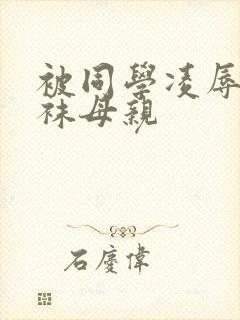 被同學凌辱
袜母親
石慶偉